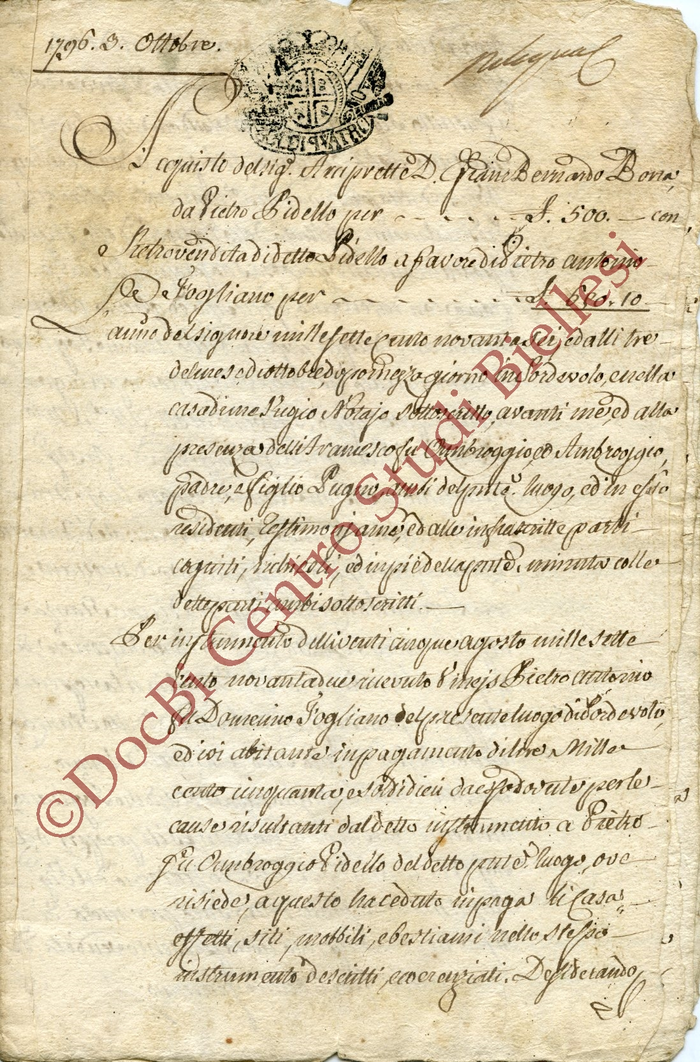 1796. 3. Ottobre.
Acquisto del sig.r Arciprette D. Gioanni Bernardo Bona,
da Pietro Fidello per - - - - - £. 500. - con
Retrovendita di detto Fidello a favore di Pietro Antonio
Fogliano per - - - - - £. 650. 10 -
L'anno del signore mille sette cento novantasei, ed alli tre
del mese di ottobre, dopo mezzo giorno in Sordevolo, e nella
casa di me Pugio Notajo sottoscritto, avanti me, ed alla
presenza delli Francesco fu Ambroggio, ed Ambroggio,
padre, e figlio Pugno, del pnte luogo, ed in esso
residenti, testimonj a me, ed alle infrascritte parti
cogniti, richiesti, ed in piè della pnte minuta colle
dette parti sottoscritti. -
Per instrumento delli venti cinque agosto mille sette
cento novanta due ricevuto Pietro Antonio
fu Domenico Fogliano del presente luogo di Sordevolo,
ed ivi abitante in pagamento di lire Mille
cento cinquanta, e soldi dieci da esso dovute per le
cause risultanti dal detto instrumento a Pietro
fu Ambroggio Fidello del detto pnte luogo, ove
risiede, a questo ha ceduto in paga li Casa
effetti, siti, mobbili, e bestiami nello stesso
instrumento descritti, e coerenziati. Desiderando
©DocBi Centro Studi Biellesi